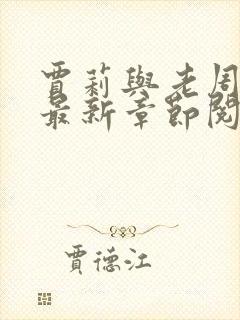 賈莉與老周
最新章節閱
賈德江